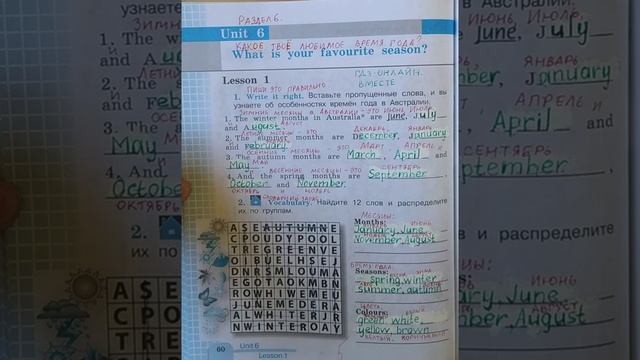 РАЗДЕЛ 6.
Unit 6
КАКОЕ ТВОЁ ЛЮБИМОЕ ВРЕМЯ ГОДА?
What is your favourite season?
Lesson 1
ГДЗ-ОНЛАЙН.
ВМЕСТЕ
ПИШИ ЭТО ПРАВИЛЬНО
1. Write it right. Вставьте пропущенные слова, и вы
узнаете об особенностях времён года в Австралии.
ЗИМНИЕ МЕСЯЦЫ В АВСТРАЛИИ - ЭТО ИЮНЬ, ИЮЛЬ,
1. The winter months in Australia* are June, July
АВГУСТ
and August
ЛЕТНИЕ МЕСЯЦЫ - ЭТО ДЕКАБРЬ, ЯНВАРЬ
2. The summer months are December, January
and February
ОСЕННИЕ МЕСЯЦЫ ЭТО МАРТ АПРЕЛЬ И
3. The autumn months are March, April and
May
ВЕСЕННИЕ МЕСЯЦЫ - ЭТО СЕНТЯБРЬ
4. And the spring months are September,
October and November.
ОКТЯБРЬ И НОЯБРЬ
СЛОВАРНЫЙ ЗАПАС
2. Vocabulary. Найдите 12 слов и распределите
их по группам.
МЕСЯЦЫ:
Months:
ИЮНЬ
January, June,
November, August
ВРЕМЕНА ГОДА
Seasons:
ВЕСНА ЗИМА
spring, winter
summer, autumn
ЦВЕТА
Colours:
green, white,
yellow, brown
ЖЁЛТЫЙ, КОРИЧНЕВЫЙ
ASEAUTUMNE
CPOUDYPOOL
TREGREENVE
IBUELHSEJ
DNRSMLOUMA
EGOTAOKMBN
ROWHIWEMEU
JUNEMEDERA
ALWHITERJR
NWINTEROAY
60
Unit 6
Lesson 1